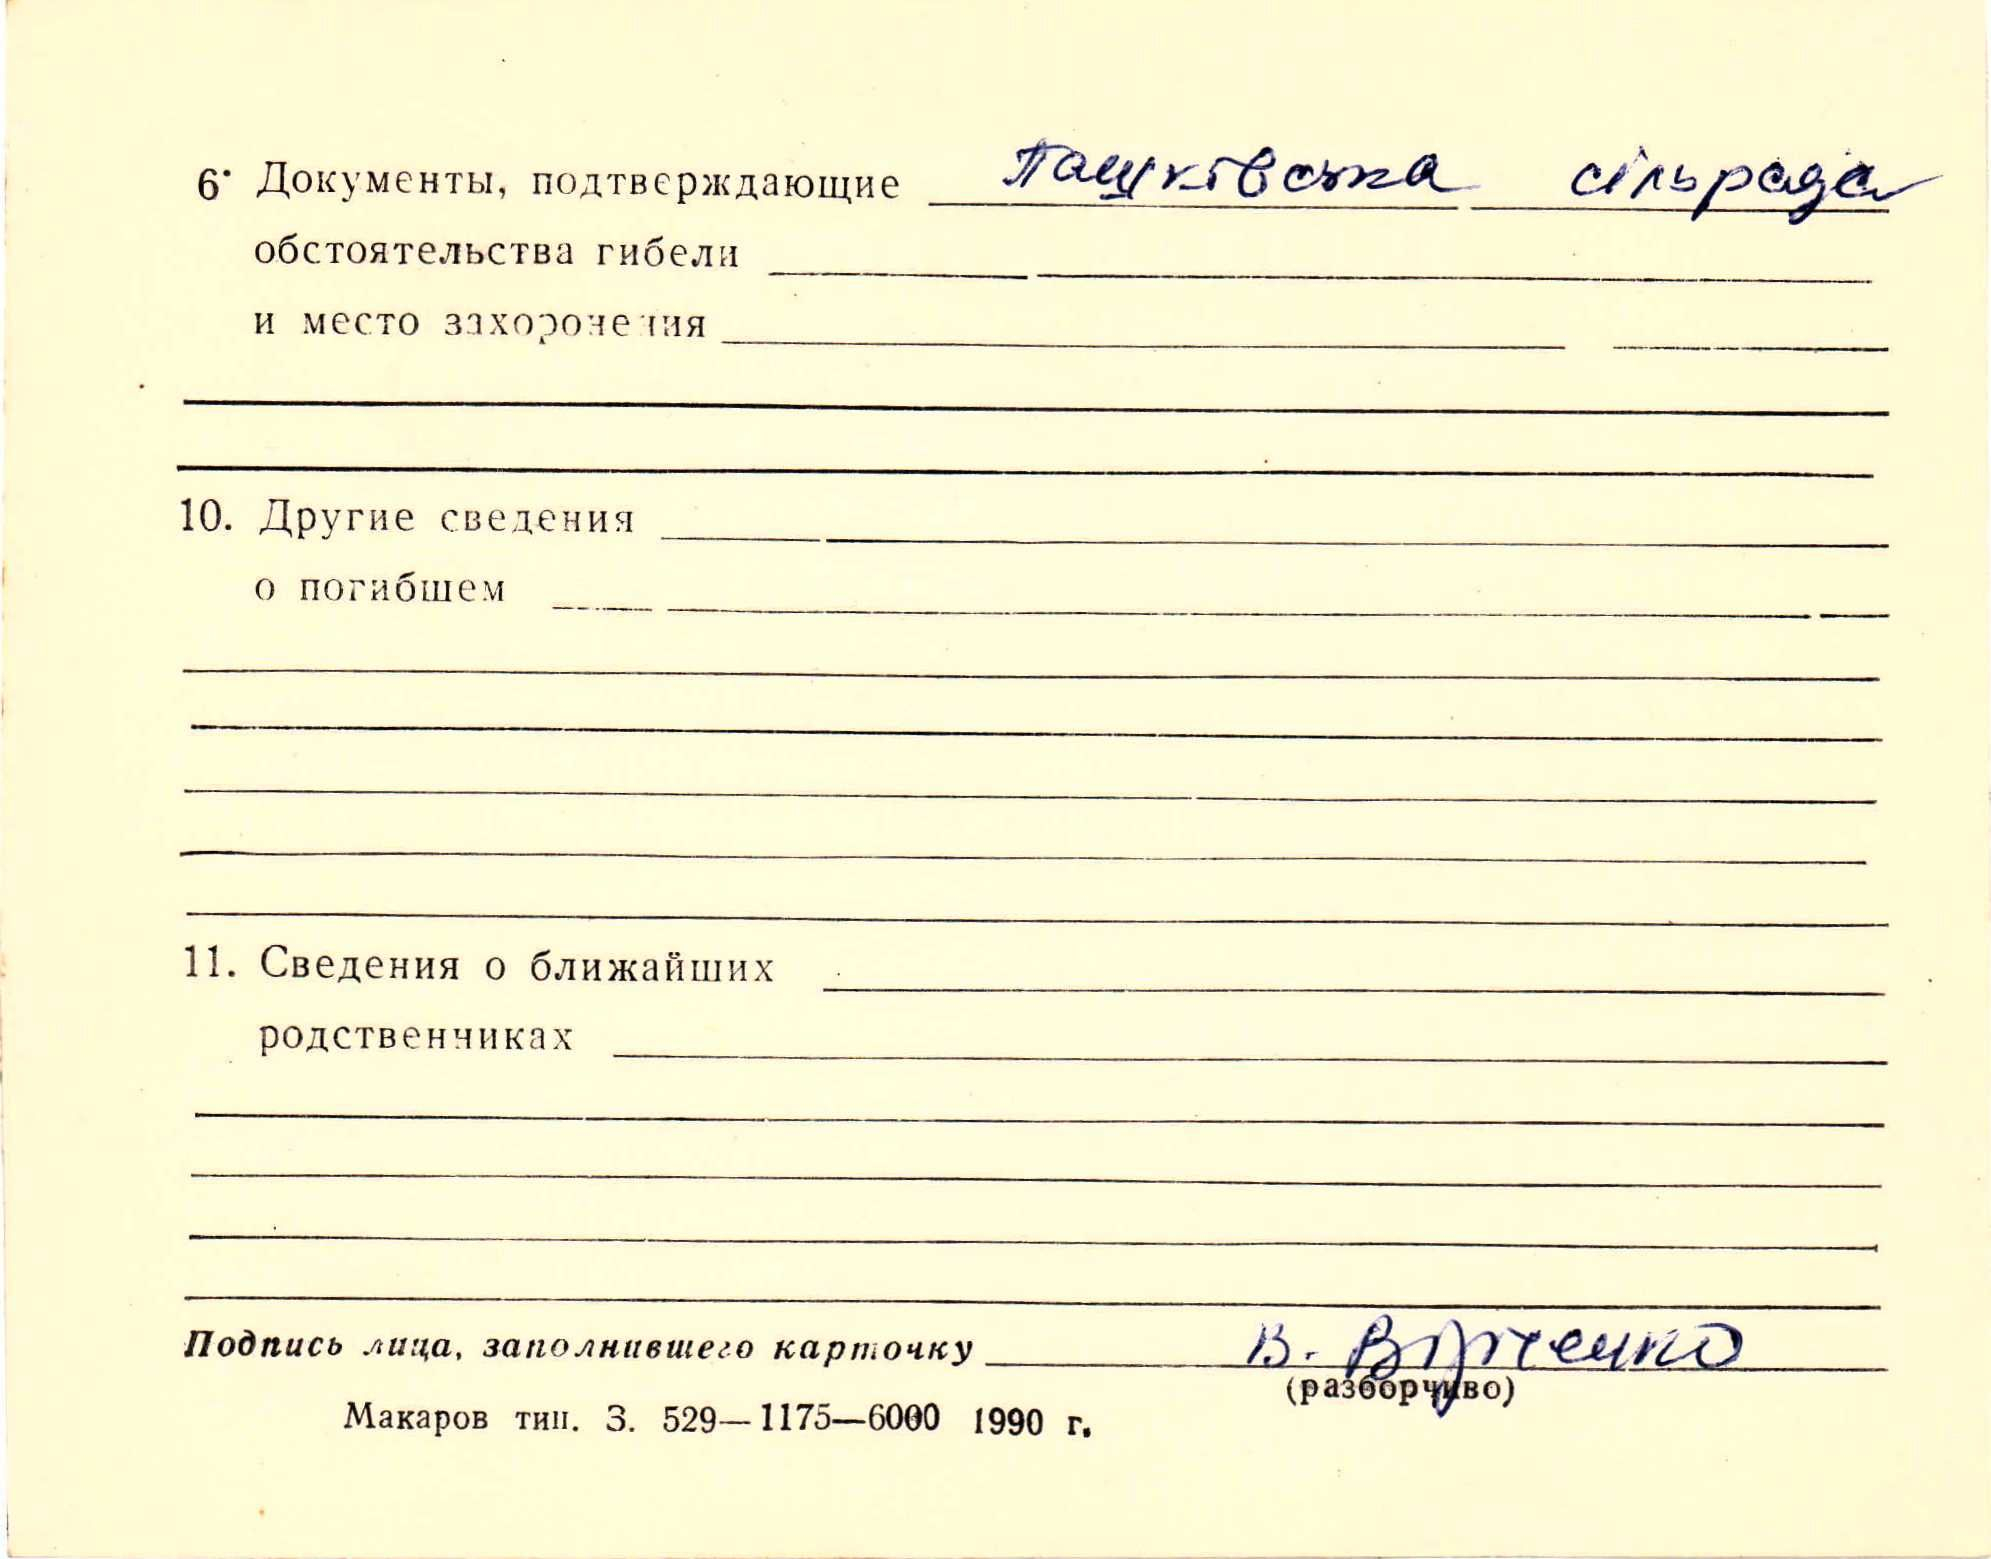 6. Документы, подтверждающие Пашківська сільрада
обстоятельства гибели
и место захоронения
10. Другие сведения
о погибшем
11. Сведения о ближайших
родственниках
Подпись лица, заполнившего карточку В.
(разборчиво)
Макаров тип. З. 529—1175—6000 1990 г.